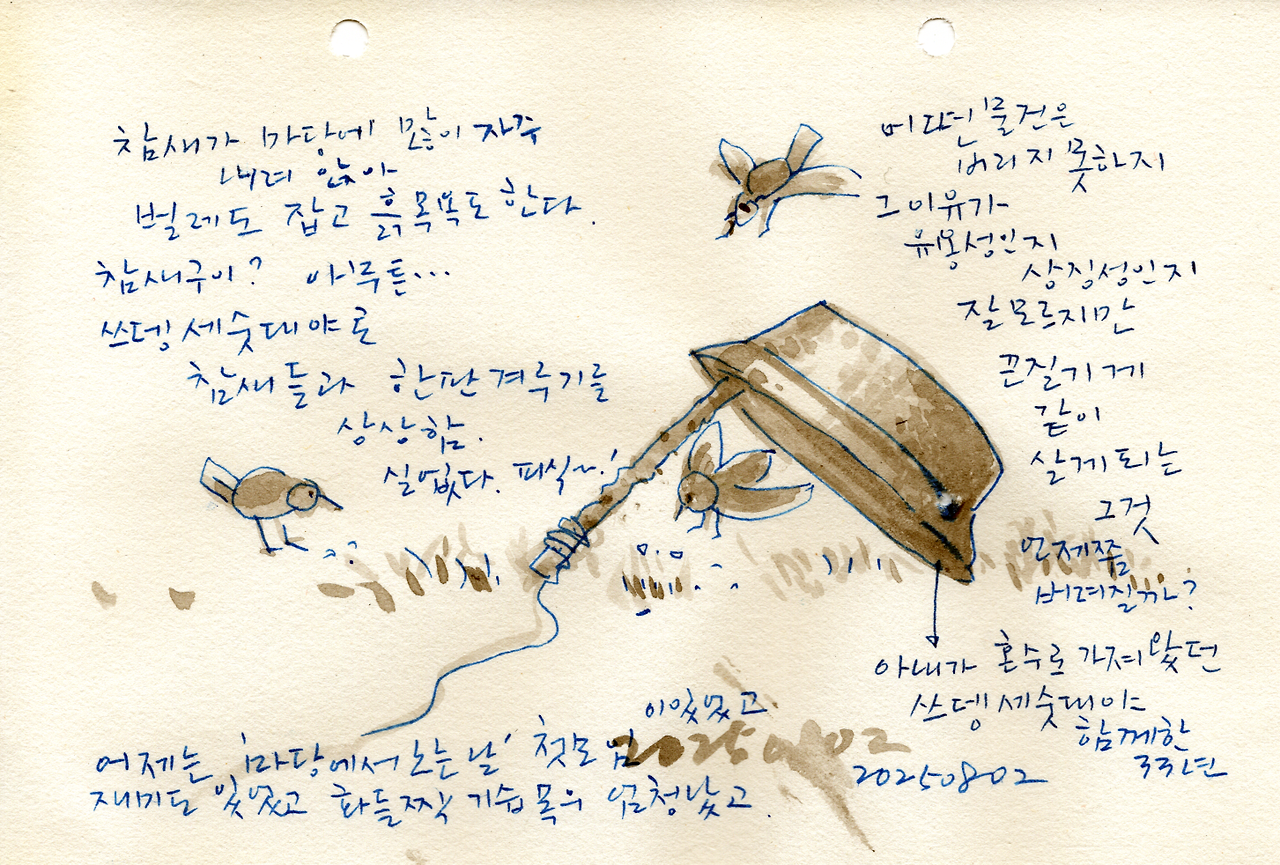 참새가 마당에 많이 자주
내려 앉아
벌레도 잡고 흙목욕도 한다.
참새구이? 아무튼...
쓰뎅 세숫대야로
참새들과 한판 겨루기를
상상함.
실없다. 피식~!
어떤 물건은
버리지 못하지
그 이유가
유용성인지
상징성인지
잘 모르지만
끈질기게
같이
살게 되는
그것
언제쯤
버려질까?
아내가 혼수로 가져 왔던
쓰뎅 세숫대야
함께한
33년
어제는 '마당에서 노는 날' 첫모임
이있었고
재미도 있었고 화들짝 기쉼목의 엄청났고.
20250802
20250802